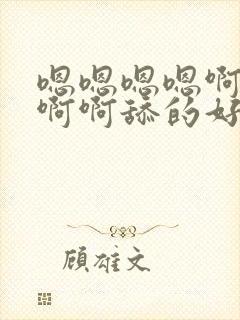 嗯嗯嗯嗯啊
啊啊舔的好
顾雄文